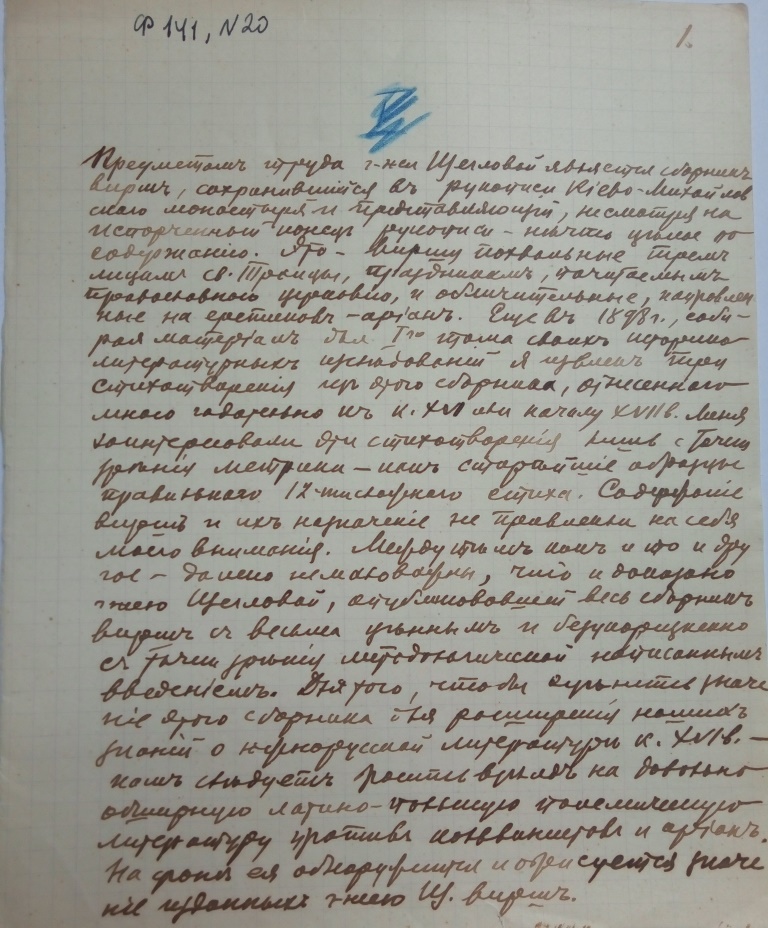 Ф 141, N 20
1.
IV
Предметомъ труда г-жи Щегловой является сборникъ
виршъ, сохранившійся въ рукописи Кіево-Михайлов
скаго монастыря и представляющій, несмотря на
испорченный конецъ рукописи - нѣчто цѣлое по
содержанію. Это - вирши похвальные тремъ
лицамъ св. Троицы, праздникамъ, почитаемымъ
православною церковью, и обличительные, направлен
ные на еретиковъ-аріанъ. Еще въ 1898 г., соби-
рая матеріалъ для I-го тома своихъ историко
литературныхъ изслѣдованій я извлекъ три
стихотворенія изъ этого сборника, отнесеннаго
мною гадательно къ к. XVI или началу XVII в. Меня
заинтересовали эти стихотворенія лишь с точки
зрѣнія метрики - какъ старѣйшіе образцы
правильнаго 12-тисложнаго стиха. Содержаніе
виршъ и ихъ назначеніе не привлекли на себя
моего вниманія. Между тѣмъ какъ и то и дру
гое - далеко немаловажны, что и доказано
г-жею Щегловой, опубликовавшей весь сборникъ
виршъ съ весьма цѣннымъ и безукоризненно
съ точки зрѣнія методологической написаннымъ
введеніемъ. Для того, чтобы оцѣнить значе
ніе этого сборника для расширенія нашихъ
знаній о южнорусской литературѣ к. XVI в. -
намъ слѣдуетъ бросить взглядъ на довольно
обширную латино-польскую полемическую
литературу противъ кальвинистовъ и аріанъ.
На фонѣ ея обнаружится и обрисуется значе
ніе изданныхъ г-жею Щ. виршъ.